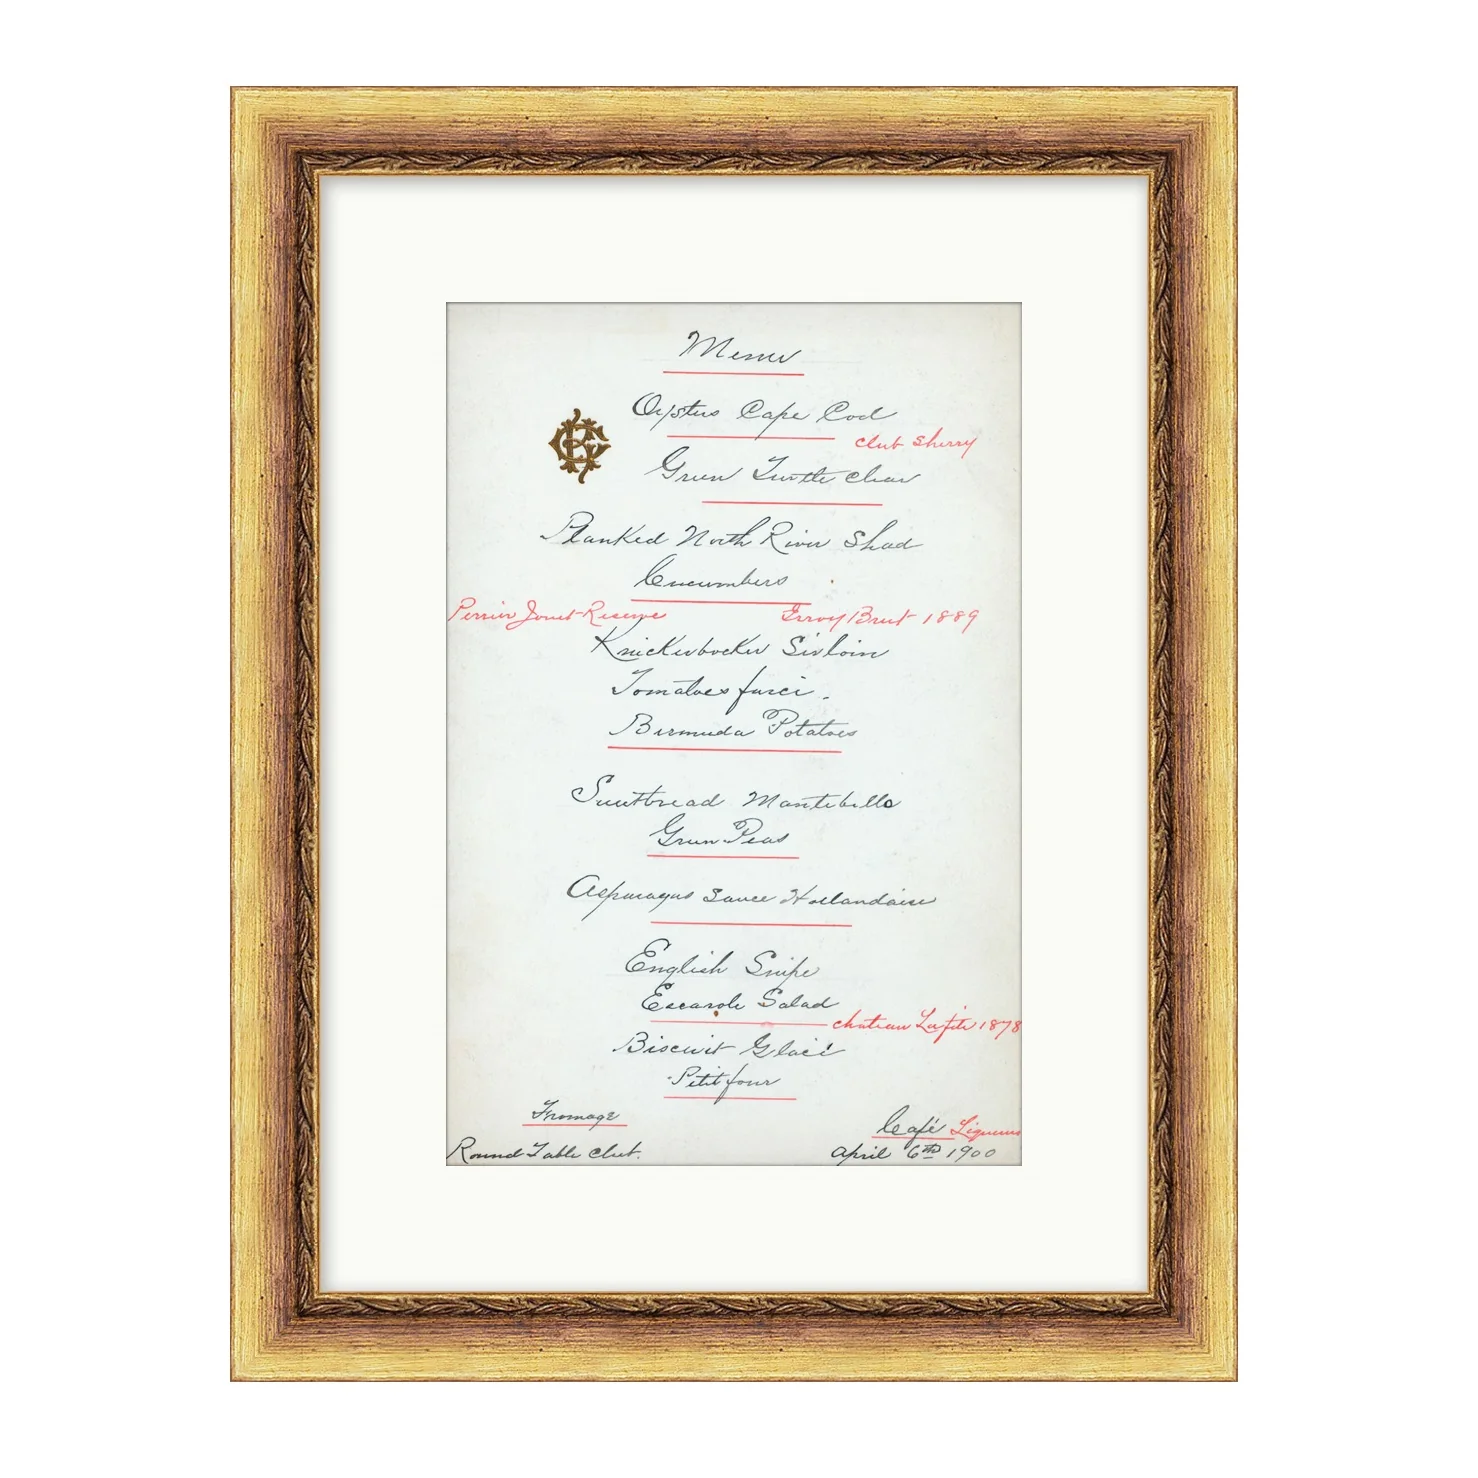 Menu
Oysters Cape Cod
Club Sherry
Green Turtle Clear
Planked North River Shad
Cucumbers
Perrier Jouet Reserve Irroy Brut 1889
Knickerbocker Sirloin
Tomatoes farci.
Bermuda Potatoes
Sweetbread Montebello
Green Peas
Asparagus Sauce Hollandaise
English Snipe
Escarole Salad
Chateau Lafite 1878
Biscuit Glacé
Petit four
Fromage
Café Liqueurs
Round Table Club. April 6th 1900